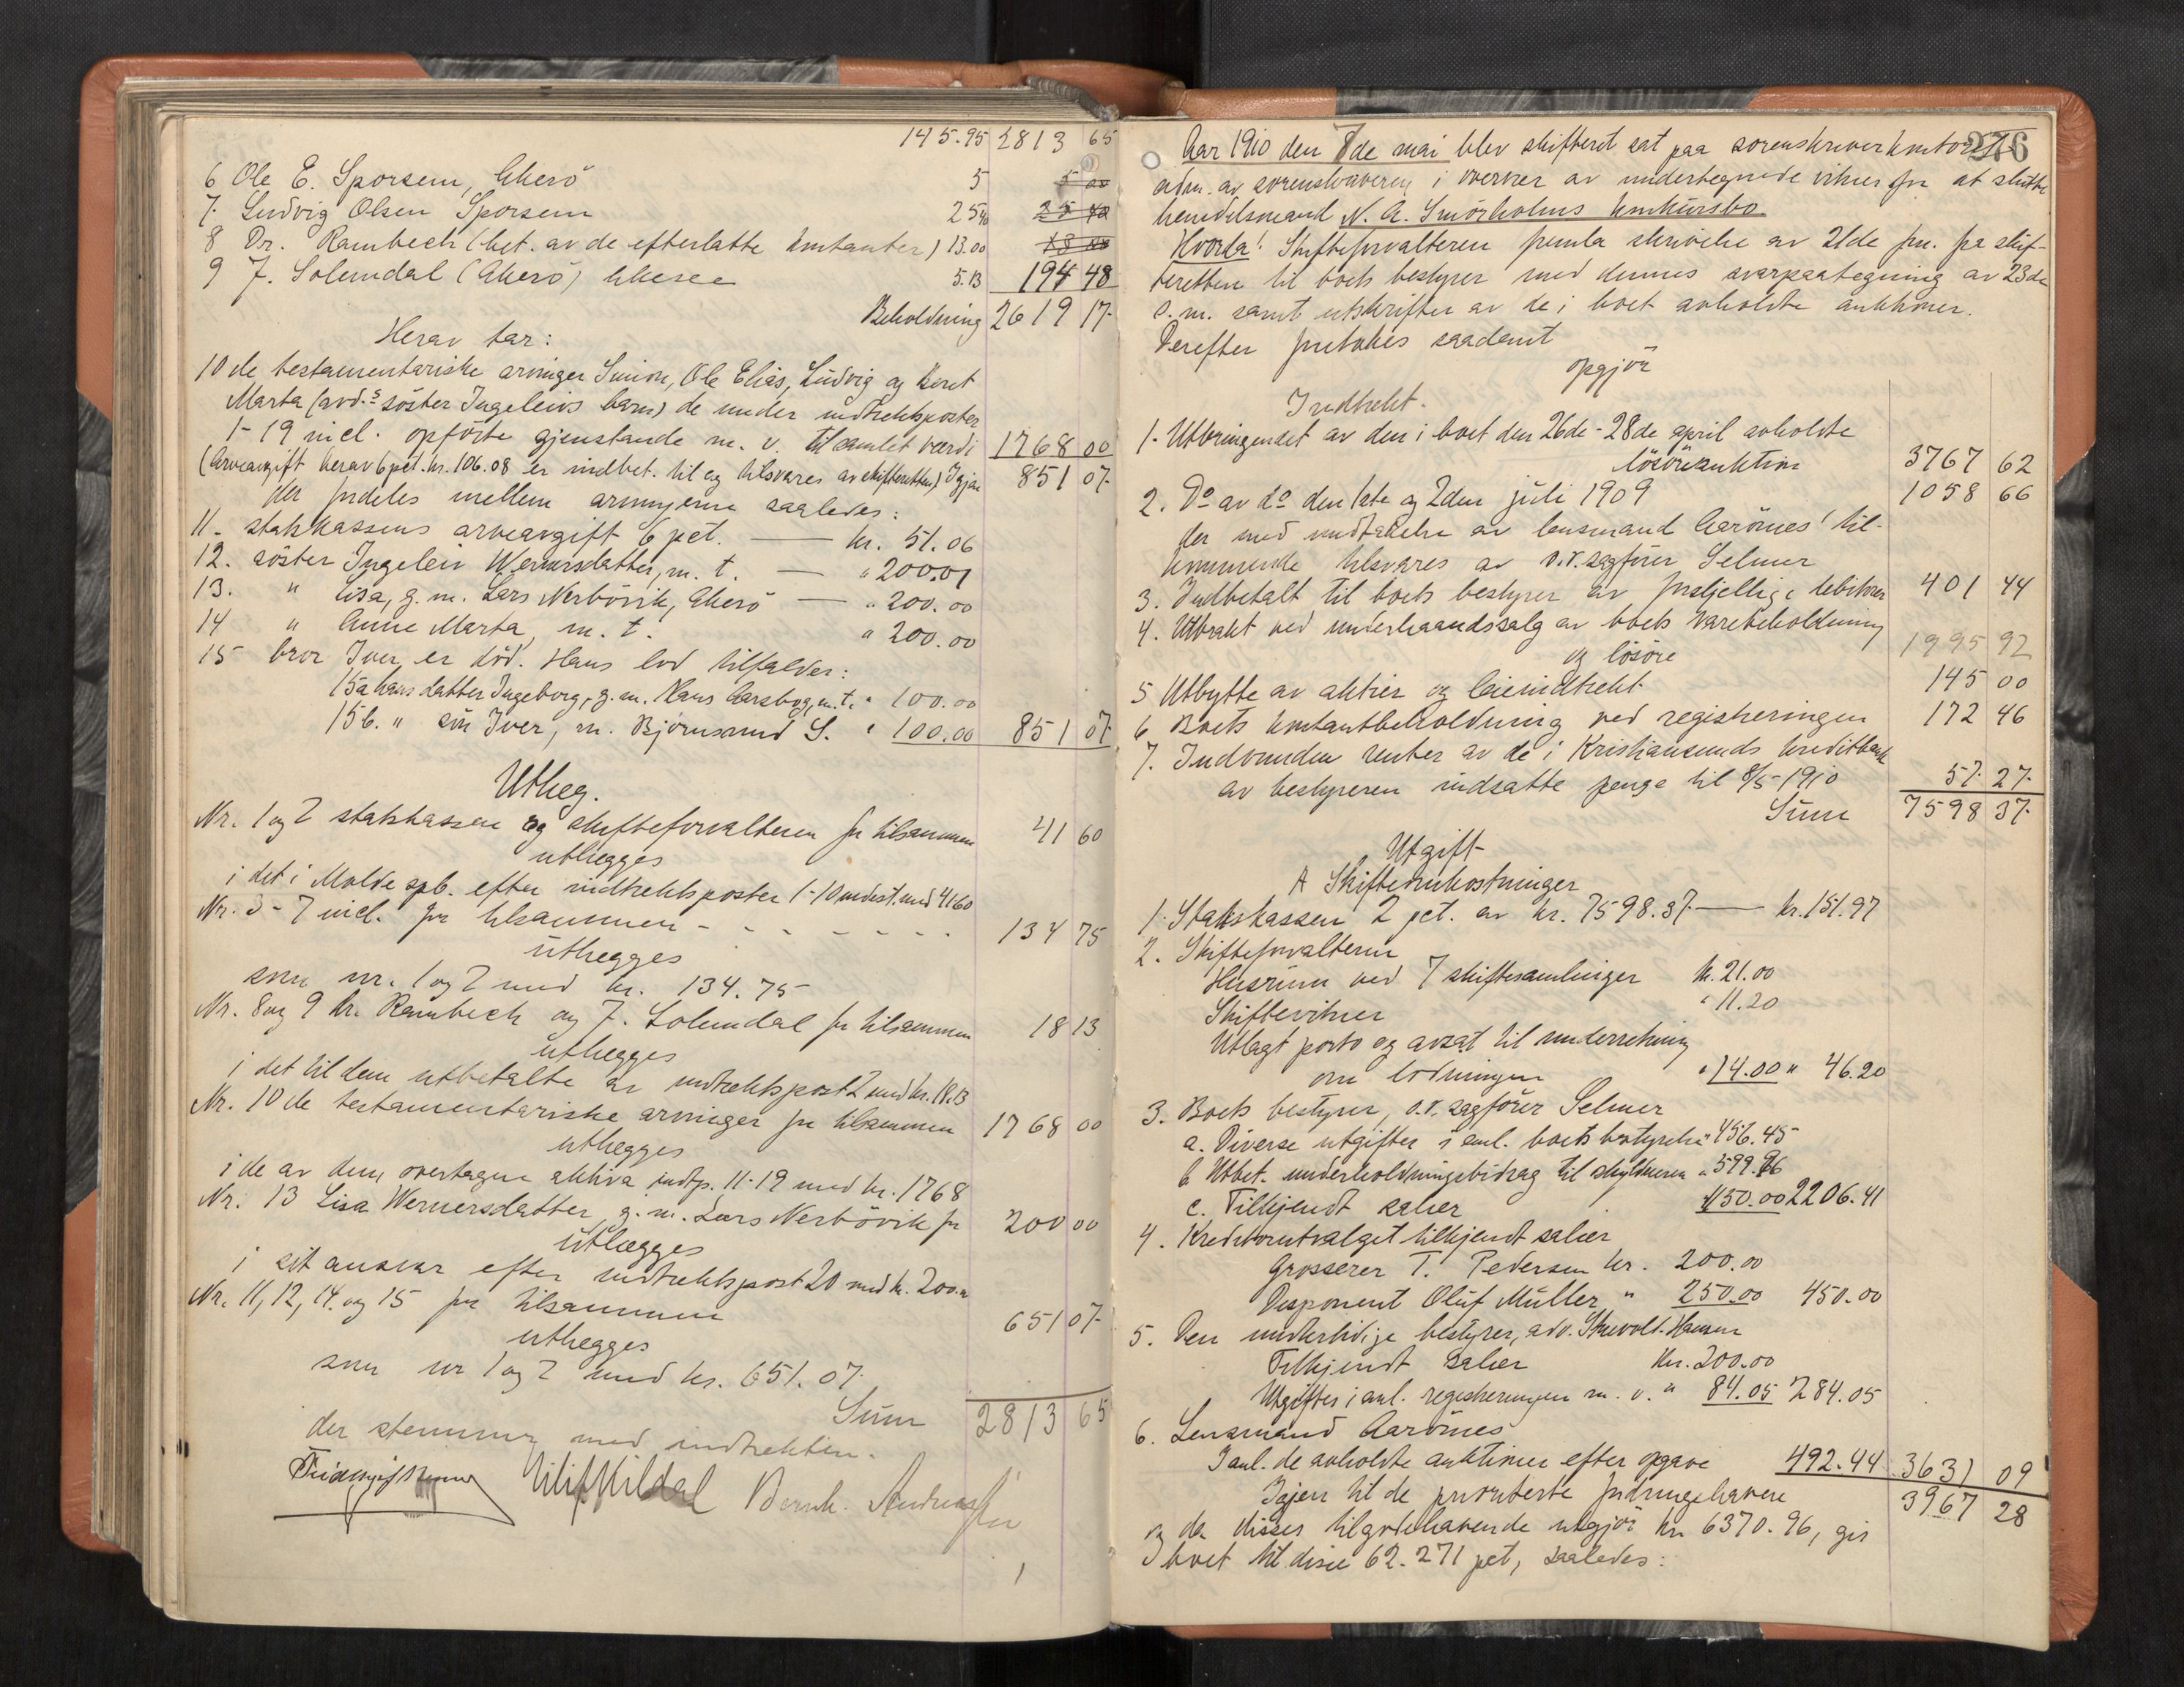 145.95 2813 65
6 Ole E. Sporsem, Akerö 5 5 00
7. Ludvig Olsen Sporsem 25 40 25 40
8 Dr. Rambech (bet. av de efterlatte kontanter) 13.00 13 00
9 J. Solemdal (Akerö) likesee 5.13 194 48
Beholdning 2619 17
Herav tar:
10 de testamentariske arvinger Simon, Ole Elias, Ludvig og Beret
Marta (avd.s söster Ingeleivs barn) de under indtektsposter
1-19 incl. opförte gjenstande m. v. til samlet værdi 1768 00
(Arveavgift herav 6 pct. kr. 106.08 er indbet. til og tilsvares av skifteretten) Igjen 851 07
der fordeles mellem arvingerne saaledes:
11. statskassens arveavgift 6 pct. kr. 51.06
12. söster Ingeleiv Wernersdatter, m. t. " 200.01
13. " Lisa, g. m. Lars Nerbövik, Akerö " 200.00
14 " Anne Marta, m. t. " 200.00
15 bror Iver, er död. Hans lod tilfalder:
15a hans datter Ingeborg, g. m. Hans Aarsbog, m. t. " 100.00
15b. " sön Iver, m. Björnsund S. " 100.00 851 07
Utlæg.
Nr. 1 og 2 statskassen og skifteforvalteren for tilsammen 41 60
utlægges
i det i Molde spb. efter indtektsposter 1-10 indest. med 41.60
Nr. 3-7 incl. for tilsammen - - - - - - 134 75
utlægges
som nr. 1 og 2 med kr. 134.75
Nr. 8 og 9 dr. Rambech og J. Solemdal for tilsammen 18 13
utlægges
i det til dem utbetalte av indtektspost 2 med kr. 18.13
Nr. 10 de testamentariske arvinger for tilsammen 1768 00
utlægges
i de av dem overtagne aktiva indtp. 11-19 med kr. 1768
Nr. 13 Lisa Wernersdatter g. m. Lars Nerbövik for 200 00
utlægges
i sit ansvar efter indtektspost 20 med kr. 200.00
Nr. 11, 12, 14 og 15 for tilsammen 651 07
utlægges
som nr 1 og 2 med kr. 651.07
Sum 2813 65
der stemmer med indtekten.
Bernh.
276
Aar 1910 den 8de mai blev skifteret sat paa sorenskriverkontoret
adm. av sorenskriveren i overvær av undertegnede vitner for at slutte
handelsmand N. A. Smörholms konkursbo.
Hvorda: Skifteforvalteren fremla skrivelse av 21de fm. fra skif-
teretten til boets bestyrer med dennes svarpaategning av 23de
s. m. samt utskrifter av de i boet avholdte auktioner.
Derefter foretokes saadant
opgjör
Indtekt.
1. Utbringendet av den i boet den 26de-28de april avholdte
lösöreauktion 3767 62
2. Do av do den 1ste og 2den juli 1909 1058 66
der med undtakelse av lensmand Aarönes' til-
kommende tilsvares av o.r.sagförer Selmer
3. Indbetalt til boets bestyrer av forskjellige debitorer 401 44
4. Utbrakt ved underhaandssalg av boets varebeholdning
og lösöre 1995 92
5 Utbytte av aktier og leieindtekt 145 00
6 Boets kontantbeholdning ved registreringen 172 46
7. Indvunden renter av de i Kristiansunds kreditbank
av bestyreren indsatte penge til 8/5-1910 57 27
Sum 7598 37
Utgift
A Skifteomkostninger
1. Statskassen 2 pct. av kr. 7598.37 kr. 151.97
2. Skifteforvalteren
Husrum ved 7 skiftesamlinger kr. 21.00
Skiftevitner " 11.20
Utlagt porto og avsat til underretning
om lodningen " 14.00 " 46.20
3. Boets bestyrer, o.r. sagförer Selmer
a. Diverse utgifter i anl. boets bestyrelse " 456.45
b Utbet. underholdningsbidrag til skyldneren " 599.96
c. Tilkjendt salær 1150.00 2206.41
4. Kreditorutvalget tilkjendt salær
Grosserer T. Pedersen kr. 200.00
Disponent Oluf Müller " 250.00 450.00
5. Den midlertidige bestyrer, adv. Hansen
Tilkjendt salær kr. 200.00
Utgifter i anl. registreringen m. v. " 84.05 284.05
6. Lensmand Aarönes
I anl. de avholdte auktioner efter opgave 492.44 3631 09
Igjen til de prioriterte fordringshavere 3967 28
og da disses tilgodehavende utgjör kr 6370.96, gir
boet til disse 62.271 pct, saaledes: